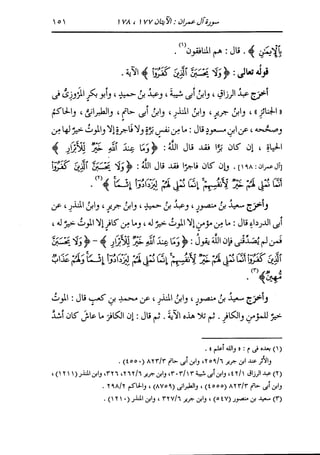 سورة آل عمران : الآيتان ١٧٧ ، ١٧٨
١٥١
بِٱلْإِيمَٰنِ ﴾ . قال : هم المنافقون(١) .
قولُه تعالى : ﴿ وَلَا يَحْسَبَنَّ ٱلَّذِينَ كَفَرُوٓا۟ ﴾ الآية .
أخرَج عبدُ الرزاقِ ، وابنُ أبى شيبةَ ، وعبدُ بنُ حميدٍ ، وأبو بكرٍ المَرْوَزِىُّ فى
« الجنائزِ » ، وابنُ جريرٍ ، وابنُ المنذرِ ، وابنُ أبى حاتمٍ ، والطبرانىُّ ، والحاكمُ
وصحَّحه ، عن ابنِ مسعودٍ قال : ما مِن نفسٍ بَرَّةٍ ولا فاجرةٍ إلا والموتُ خيرٌ لها مِن
الحياةِ ، إن كان بَرًّا فقد قال اللهُ : ﴿ وَمَا عِندَ ٱللَّهِ خَيْرٌ لِّلْأَبْرَارِ ﴾
[آل عمران : ١٩٨] . وإن كان فاجرًا فقد قال اللهُ : ﴿ وَلَا يَحْسَبَنَّ ٱلَّذِينَ كَفَرُوٓا۟
أَنَّمَا نُمْلِى لَهُمْ خَيْرٌ لِّأَنفُسِهِمْ إِنَّمَا نُمْلِى لَهُمْ لِيَزْدَادُوٓا۟ إِثْمًا ﴾(٢) .
وأخرَج سعيدُ بنُ منصورٍ ، وعبدُ بنُ حميدٍ ، وابنُ جريرٍ ، وابنُ المنذرِ ، عن
أبى الدرداءِ قال : ما مِن مؤمنٍ إلا الموتُ خيرٌ له ، وما مِن كافرٍ إلا الموتُ خيرٌ له ،
فمَن لم يُصَدِّقْنى فإن اللهَ يقولُ : ﴿ وَمَا عِندَ ٱللَّهِ خَيْرٌ لِّلْأَبْرَارِ ﴾ - ﴿ وَلَا يَحْسَبَنَّ
ٱلَّذِينَ كَفَرُوٓا۟ أَنَّمَا نُمْلِى لَهُمْ خَيْرٌ لِّأَنفُسِهِمْ إِنَّمَا نُمْلِى لَهُمْ لِيَزْدَادُوٓا۟ إِثْمًا وَلَهُمْ عَذَابٌ
مُّهِينٌ ﴾(٣) .
وأخرَج سعيدُ بنُ منصورٍ ، وابنُ المنذرِ ، عن محمدِ بنِ كعبٍ قال : الموتُ
خيرٌ للمؤمنِ والكافرِ . ثم تلا هذه الآيةَ . ثم قال : إن الكافرَ ما عاش كان أشدَّ
(١) بعده فى م : « والله أعلم » .
والأثر عند ابن جرير ٢٥٩/٦ ، وابن أبى حاتم ٨٢٣/٣ (٤٥٥٠) .
(٢) عبد الرزاق ٤٢/١ ، وابن أبى شيبة ٣٠٣/١٣ ، وابن جرير ٢٦٢/٦ ، ٣٢٦ ، وابن المنذر (١٢١١) ،
وابن أبى حاتم ٨٢٣/٣ (٤٥٥٥) ، والطبرانى (٨٧٥٩) ، والحاكم ٢٩٨/٢ .
(٣) سعيد بن منصور (٥٤٧) ، وابن جرير ٣٢٧/٦ ، وابن المنذر (١٢١٠) .